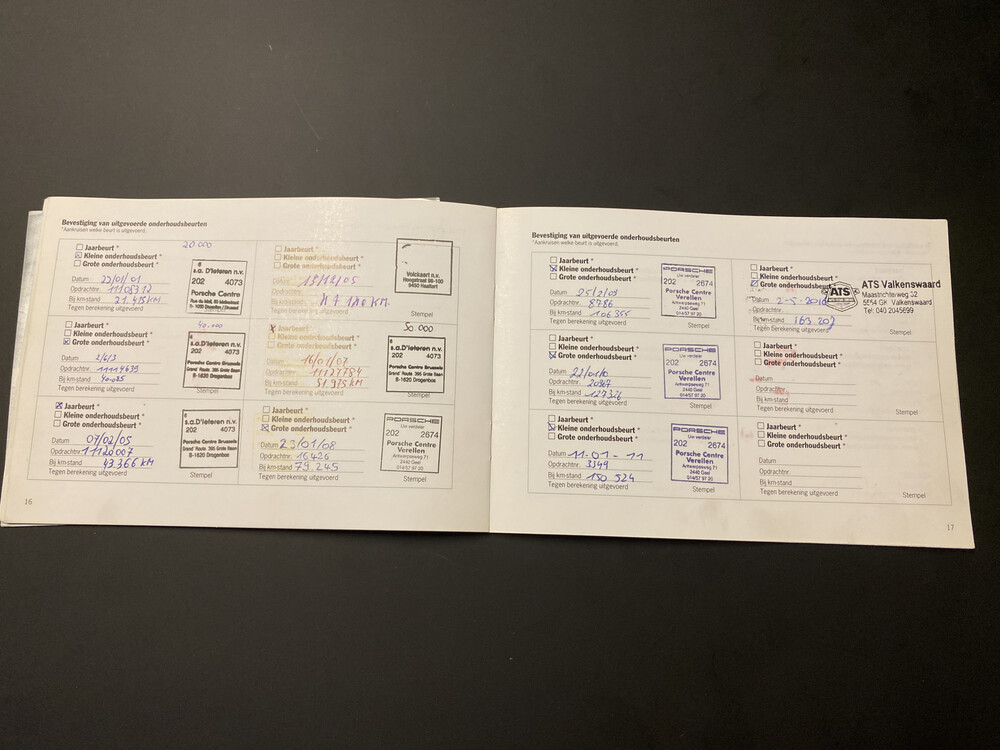 Bevestiging van uitgevoerde onderhoudsbeurten
*Aankruisen welke beurt is uitgevoerd.
20.000
Jaarbeurt *
Kleine onderhoudsbeurt *
Grote onderhoudsbeurt *
Datum 23/01/01
Opdrachtnr. 1105312
Bij km-stand 21.485 KM
Tegen berekening uitgevoerd
6
s.a. D'Ieteren n.v.
202 4073
Porsche Centre
Stempel
40.000
Jaarbeurt *
Kleine onderhoudsbeurt *
Grote onderhoudsbeurt *
Datum 2/6/3
Opdrachtnr. 11114639
Bij km-stand 40.025
Tegen berekening uitgevoerd
6
s.a. D'Ieteren n.v.
202 4073
Porsche Centre Brussels
Grand' Route 395 Grote Baan
B-1620 Drogenbos
Stempel
Jaarbeurt *
Kleine onderhoudsbeurt *
Grote onderhoudsbeurt *
Datum 07/02/05
Opdrachtnr. 11120007
Bij km-stand 43.366 KM
Tegen berekening uitgevoerd
6
s.a. D'Ieteren n.v.
202 4073
Porsche Centre Brussels
Grand' Route 395 Grote Baan
B-1620 Drogenbos
Stempel
Jaarbeurt *
Kleine onderhoudsbeurt *
Grote onderhoudsbeurt *
Datum
Opdrachtnr.
Bij km-stand 47.180 KM.
Tegen berekening uitgevoerd
Volckaert n.v.
Hoogstraat 98-100
9450 Haaltert
Stempel
50 000
Jaarbeurt *
Kleine onderhoudsbeurt *
Grote onderhoudsbeurt *
Datum 16/01/07
Opdrachtnr. 11127784
Bij km-stand 51.975 KM
Tegen berekening uitgevoerd
6
s.a. D'Ieteren n.v.
202 4073
Porsche Centre Brussels
Grand' Route 395 Grote Baan
B-1620 Drogenbos
Stempel
Jaarbeurt *
Kleine onderhoudsbeurt *
Grote onderhoudsbeurt *
Datum 23/01/08
Opdrachtnr. 16426
Bij km-stand 79.245
Tegen berekening uitgevoerd
PORSCHE
Uw verdeler
202 2674
Porsche Centre
Verellen
Antwerpseweg 71
2440 Geel
014/57 97 20
Stempel
16
Bevestiging van uitgevoerde onderhoudsbeurten
*Aankruisen welke beurt is uitgevoerd.
Jaarbeurt *
Kleine onderhoudsbeurt *
Grote onderhoudsbeurt *
Datum 25/2/09
Opdrachtnr. 8786
Bij km-stand 106.355
Tegen berekening uitgevoerd
PORSCHE
Uw verdeler
202 2674
Porsche Centre
Verellen
Antwerpseweg 71
2440 Geel
014/57 97 20
Stempel
Jaarbeurt *
Kleine onderhoudsbeurt *
Grote onderhoudsbeurt *
Datum 22/01/10
Opdrachtnr. 20967
Bij km-stand 127326
Tegen berekening uitgevoerd
PORSCHE
Uw verdeler
202 2674
Porsche Centre
Verellen
Antwerpseweg 71
2440 Geel
014/57 97 20
Stempel
Jaarbeurt *
Kleine onderhoudsbeurt *
Grote onderhoudsbeurt *
Datum 11-01-11
Opdrachtnr. 3349
Bij km-stand 150 524
Tegen berekening uitgevoerd
PORSCHE
Uw verdeler
202 2674
Porsche Centre
Verellen
Antwerpseweg 71
2440 Geel
014/57 97 20
Stempel
Jaarbeurt *
Kleine onderhoudsbeurt *
Grote onderhoudsbeurt
Datum 2-5-2016
Opdrachtnr.
Bij km-stand 163.202
Tegen berekening uitgevoerd
ATS
ATS Valkenswaard
Maastrichterweg 32
5554 GK Valkenswaard
Tel. 040 2045699
Stempel
Jaarbeurt *
Kleine onderhoudsbeurt *
Grote onderhoudsbeurt *
Datum
Opdrachtnr.
Bij km-stand
Tegen berekening uitgevoerd
Stempel
Jaarbeurt *
Kleine onderhoudsbeurt *
Grote onderhoudsbeurt *
Datum
Opdrachtnr.
Bij km-stand
Tegen berekening uitgevoerd
Stempel
17